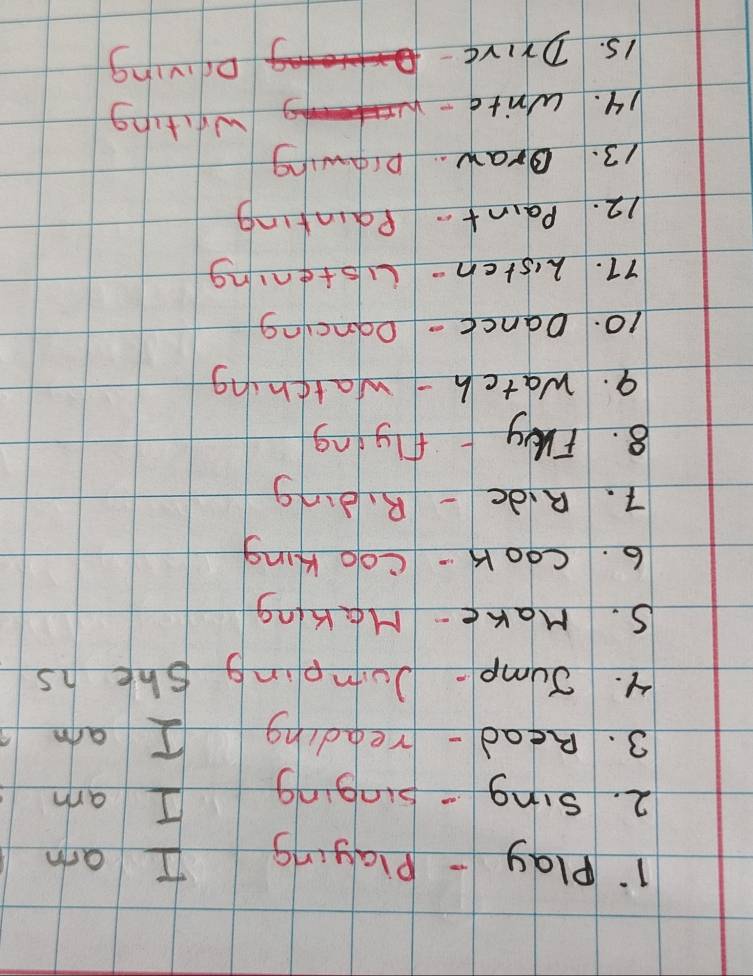 1. Play - Playing I am
2. Sing - singing I am
3. Read - reading I am
4. Jump - Jumping She is
5. Make - Making
6. Cook - Cooking
7. Ride - Riding
8. Fly - flying
9. Watch - Watching
10. Dance - Dancing
11. Listen - Listening
12. Paint - Painting
13. Draw - Drawing
14. Write - Writing
15. Drive - Driving